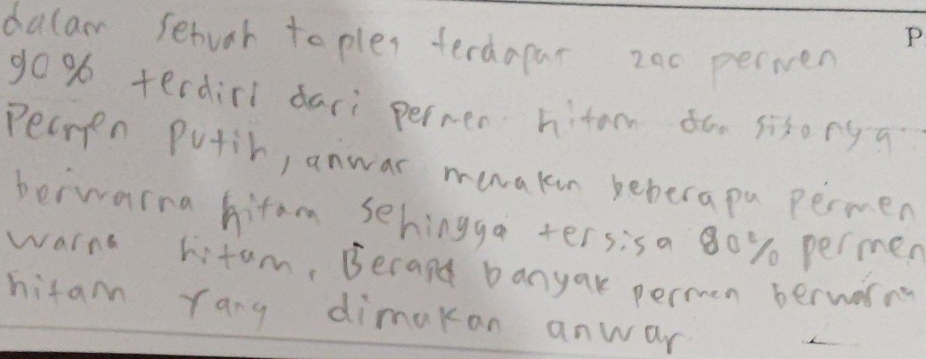 dalam sebuah toples terdapat 200 permen P
90% terdiri dari permen hitam dan sisanya
Permen Putih, anwar memakan beberapa permen
berwarna hitam sehingga tersisa 80% permen
warna hitam. Berapa banyak permen berwarna
hitam Yang dimakan anwar